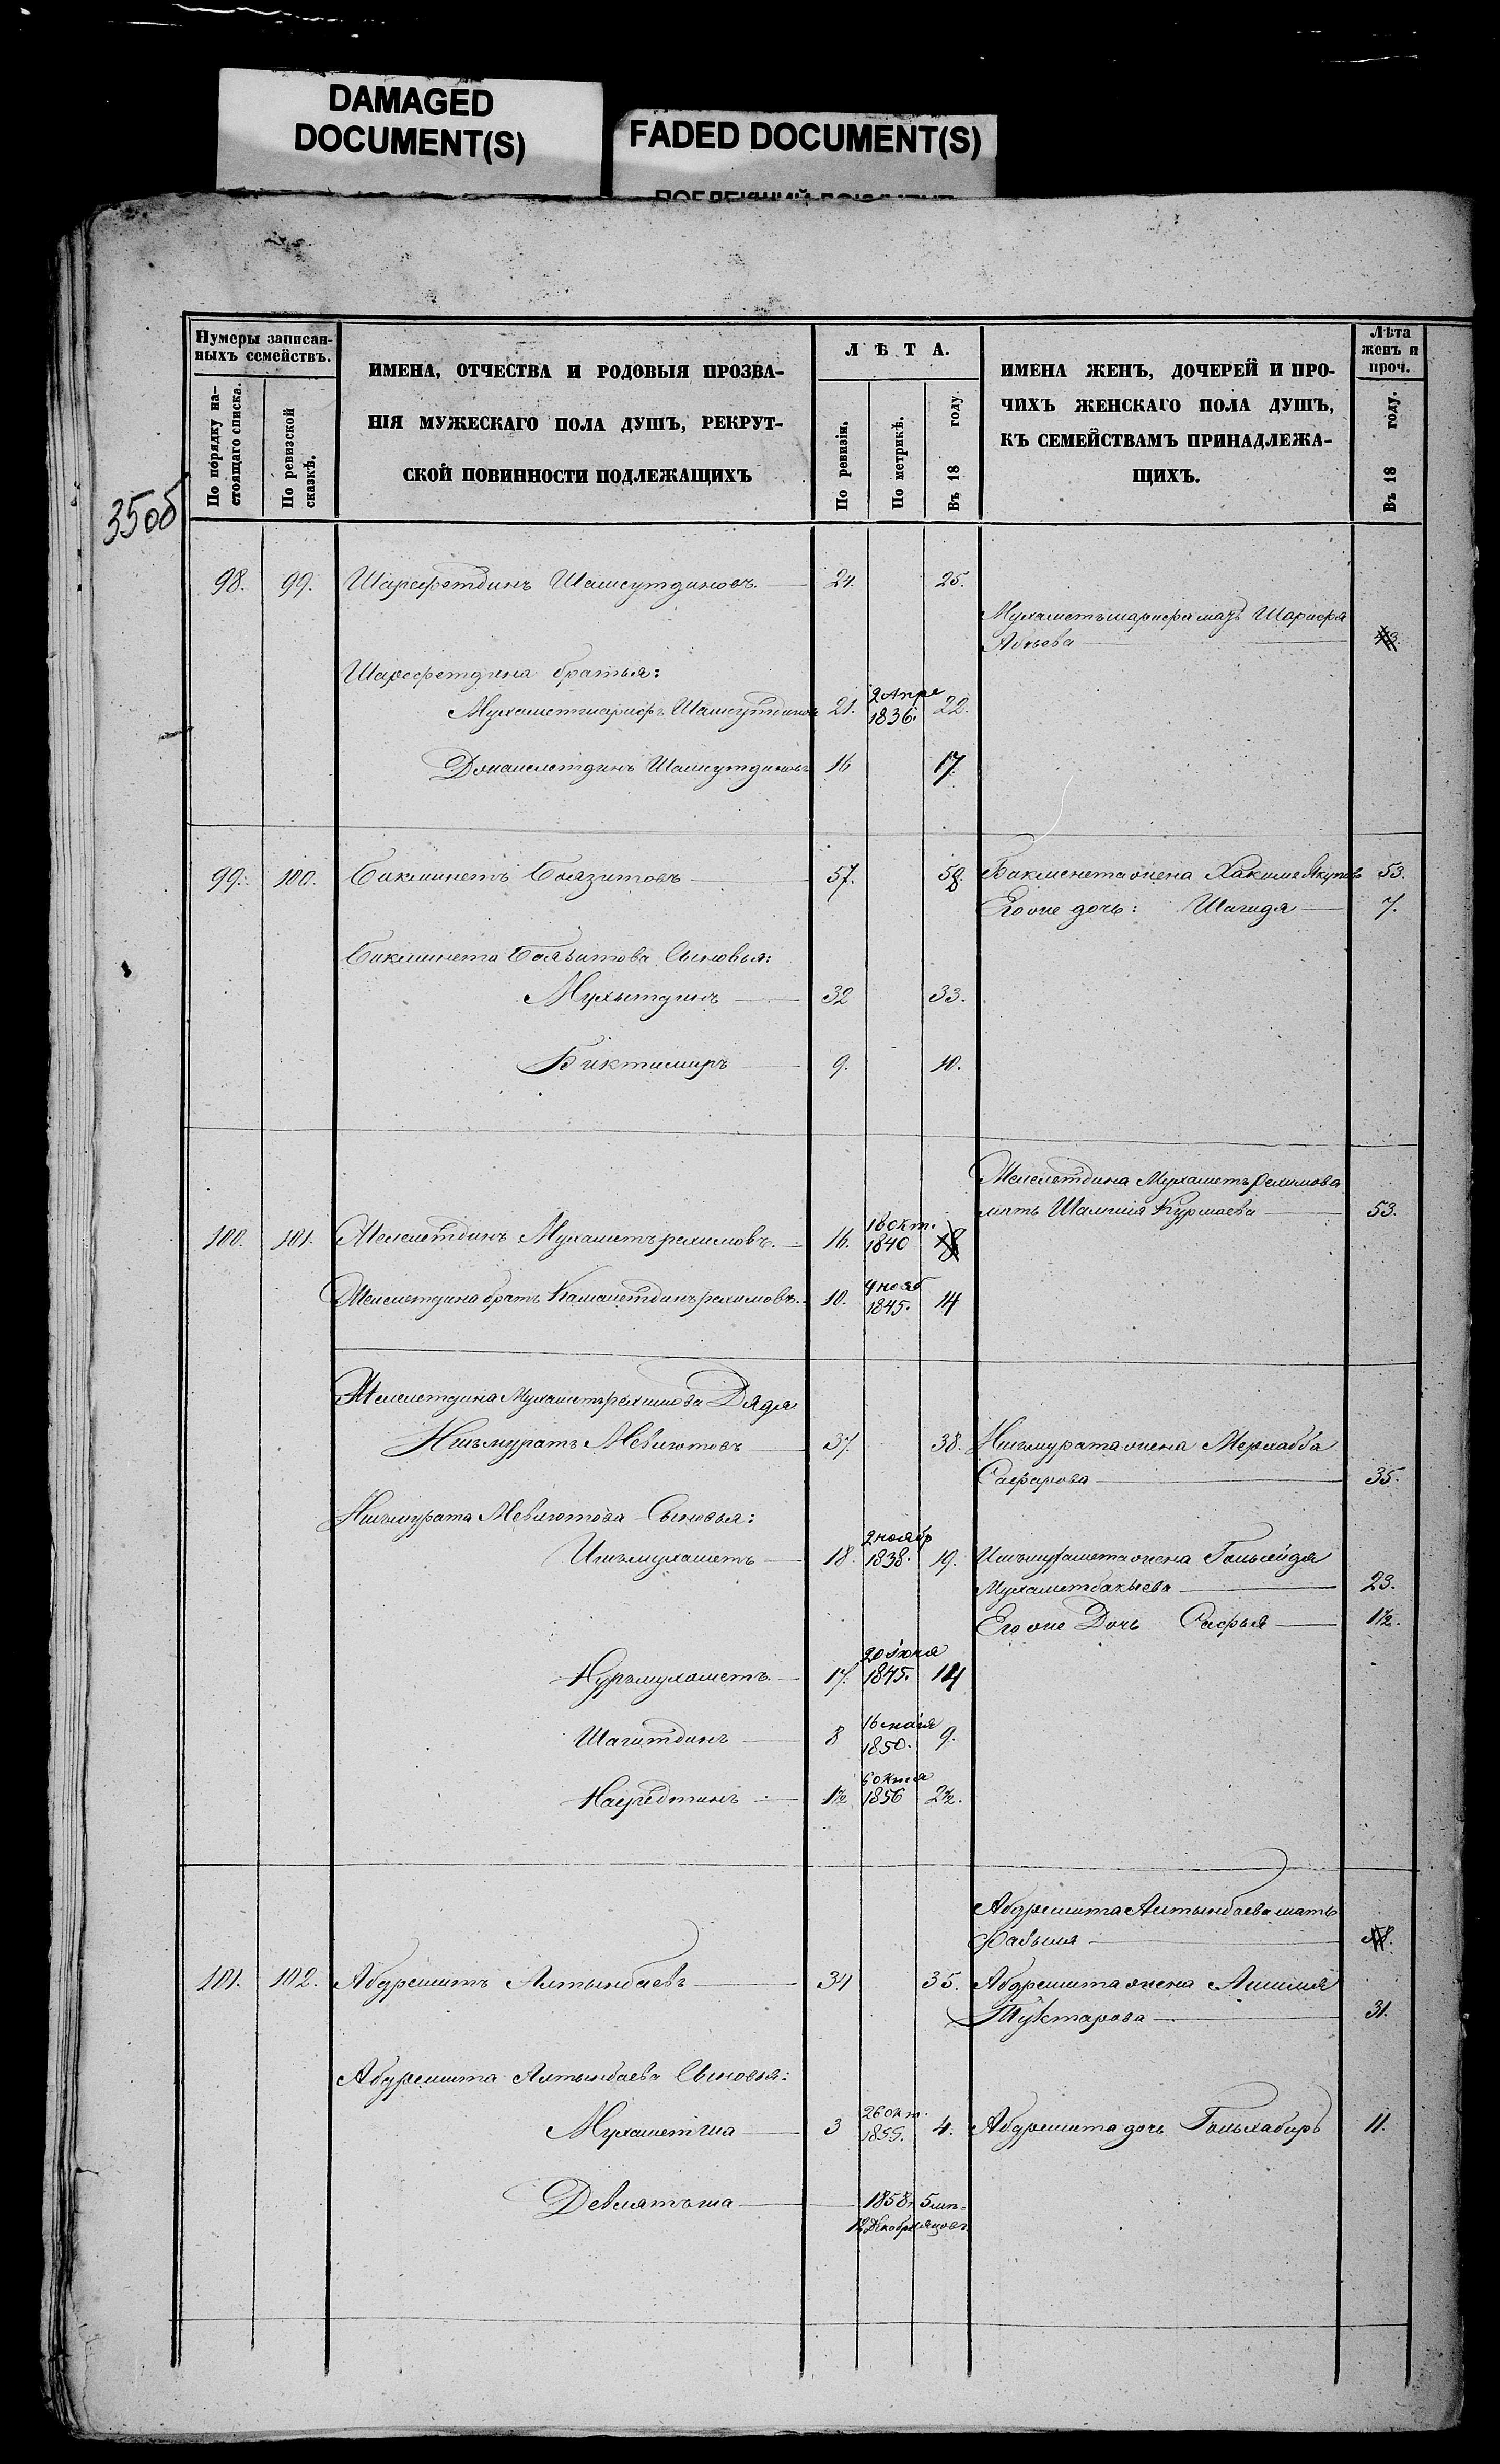 DAMAGED
DOCUMENT(S)
FADED DOCUMENT(S)
35об
Нумеры записан-
ныхъ семействъ.
По порядку на-
стоящаго списка.
По ревизской
сказкѣ.
ИМЕНА, ОТЧЕСТВА И РОДОВЫЯ ПРОЗВА-
НІЯ МУЖЕСКАГО ПОЛА ДУШЪ, РЕКРУТ-
СКОЙ ПОВИННОСТИ ПОДЛЕЖАЩИХЪ
ЛѢТА.
По ревизіи.
По метрикѣ.
Въ 18 году
ИМЕНА ЖЕНЪ, ДОЧЕРЕЙ И ПРО-
ЧИХЪ ЖЕНСКАГО ПОЛА ДУШЪ,
КЪ СЕМЕЙСТВАМЪ ПРИНАДЛЕЖА-
ЩИХЪ.
Лѣта
женъ и
проч.
Въ 18 году.
98. 99. Шарафетдинъ Шамсутдиновъ. 24. 25.
Мухаметьшарифа мать Шарифа
Абьева
Шарафетдина братья:
Мухаметшарифъ Шамсутдиновъ 21. 2 Апре 1836. 22.
Шамсутдиновъ 16 17.
99. 100. Бикминетъ Баязитовъ 57. 58. Бикминета жена Хакиме Якупова 53.
Его же дочь: Шагида 7.
Бикминета Баязитова Сыновья:
Мухытдинъ 32 33.
Биктимиръ 9. 10.
мать Шамсия Курмаева 53.
100. 101. Мухаметьрахимовъ. 16. 18 окт. 1840 18
братъ Камалетдинъ рахимовъ. 10. 4 нояб 1845. 14
Мухаметьрахимова Дядя
Нигьмуратъ Мевлютовъ 37. 38. Нигьмурата жена Мерхабба
Сафарова 35.
Нигьмурата Мевлютова Сыновья:
Ишьмухаметъ 18. 2 ноябр 1838. 19. Ишьмухамета жена Гольсейда
Мухаметбакыева 23.
Его же Дочь Сафья 1½.
Нурьмухаметъ 17. 20 Июня 1845. 14
Шагитдинъ 8 16 мая 1850. 9.
Насретдинъ 1½ 6 октя 1856 2½.
Абдрешита Алтынбаева мать
101. 102. Абдрешитъ Алтынбаевъ 34 35. Абдрешита жена
Туктарова 31.
Абдрешита Алтынбаева Сыновья:
Мухаметша 3 26 окт. 1855. 4. Абдрешита дочь Гольхабиръ 11.
Девлятьша 1858 г. 5 мѣ-
12 Декабря сяцовъ.